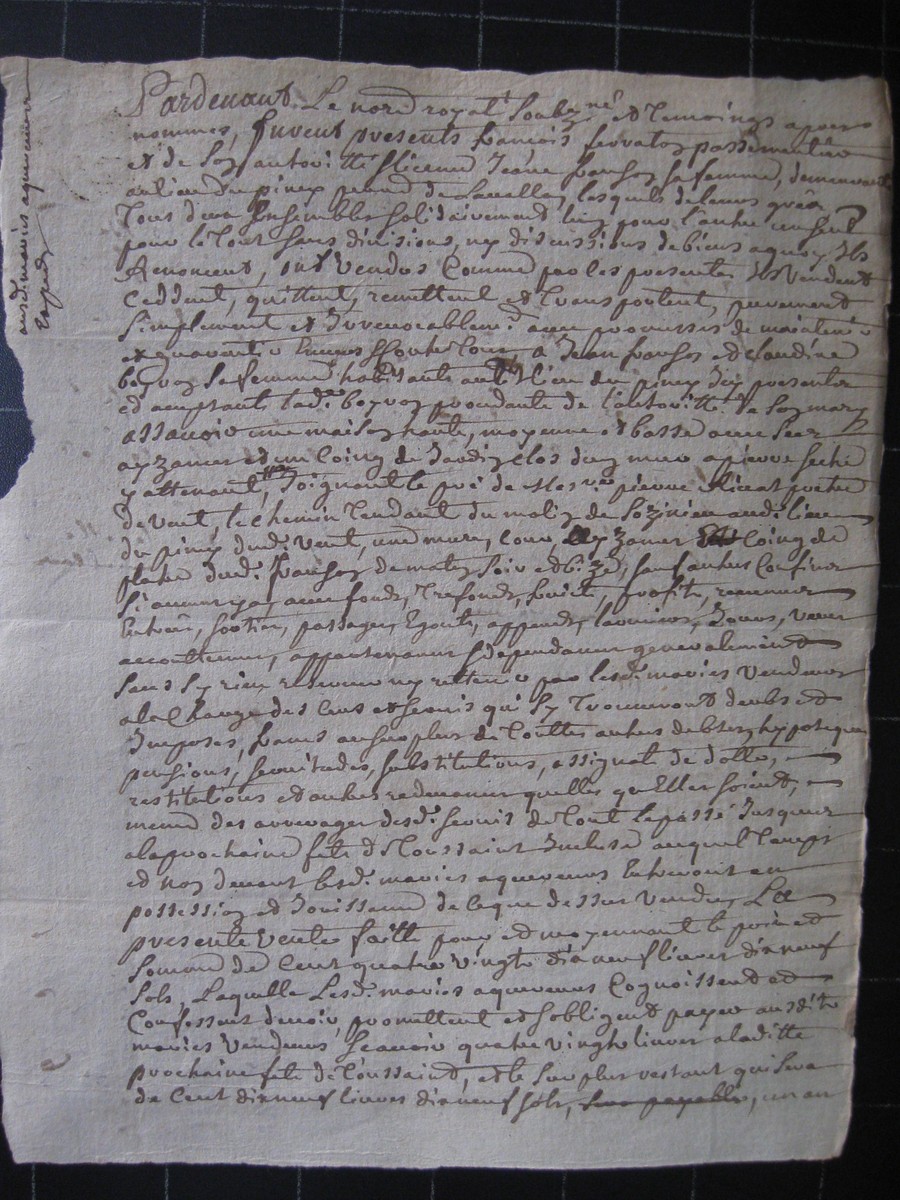 Pardevant Le no.re royal Soubz.né et Temoings apres
nommes, furent presents francois ferratoz passementier
et de Soy autoritté flicenne Jeane franson sa femme, demeurants
au lieu du piney de Lavalla, lesquels de leurs grés
Tous deux Ensembles Solidairement lun pour l'autre un seul
pour le Tout Sans divisions, ny discussions de biens a quoy Ils
Renoncent, ont vendus Comme par les presentes Ils Vendent
Ceddent, quittent, remettent et Transportent, purement
Simplement et Irrevocablem.t avec promesses de maintenir
et garantir Envers et Contre Tous, a Jean franson et Claudine
boyron Sa femme habitants audit lieu du piney Icy presents
et acceptants lad.e boyron procedante de l'autoritté de Son mary
assavoir une maison haute, moyenne et basse avec Ses
ayzances et un Coing de Jardin Clos d'un mur a pierre seche
y attenant, Joignant le pré de Mes.re pierre prêtre
devant, le chemin Tendant du molin de Sozinieu aud. lieu
du piney dud. vent, une mure, cour, ayzances et Coing de
place dud. franson de matin Soir et bize, sauf autres Confins
Si aucuns y a, avec fonds, Trefonds, fruits, profits, revenus
Entrées, Sorties, passages, Egouts, appends, Jours, veues
accoutumes, appartenances et dependances generalement
Sans S'y rien reserver ny rettenir par lesd. maries Vendeurs
ala Charge des Cens et servis qui S'y Trouveront deubs et
Imposes, francs au surplus de Touttes autres debtes, hypoteques
pensions, servitudes, substitutions, assignat de dotte,
restitutions et autres redevances quelles qu'Elles soient,
meme des arrerages desd. servis de Tout le passé Jusques
ala prochaine fete de Toussaint Incluse auquel Temps
et non devant lesd. maries aquereurs Entreront en
possession et Jouissance de ce que dessus vendu, La
presente Vente faitte pour et moyennant le prix et
Somme de Cent quatre vingts dix neuf livres dix neuf
Sols, Laquelle Lesd. maries aquereurs Cognoissent et
Confessent devoir, promettent et s'obligent payer ausdits
maries Vendeurs Scavoir quatre vingts livres a laditte
prochaine fete de Toussaint, et le Surplus restant qui sera
de Cent dix neuf livres dix neuf sols, sera payable, un an
ausd. maries aquereurs